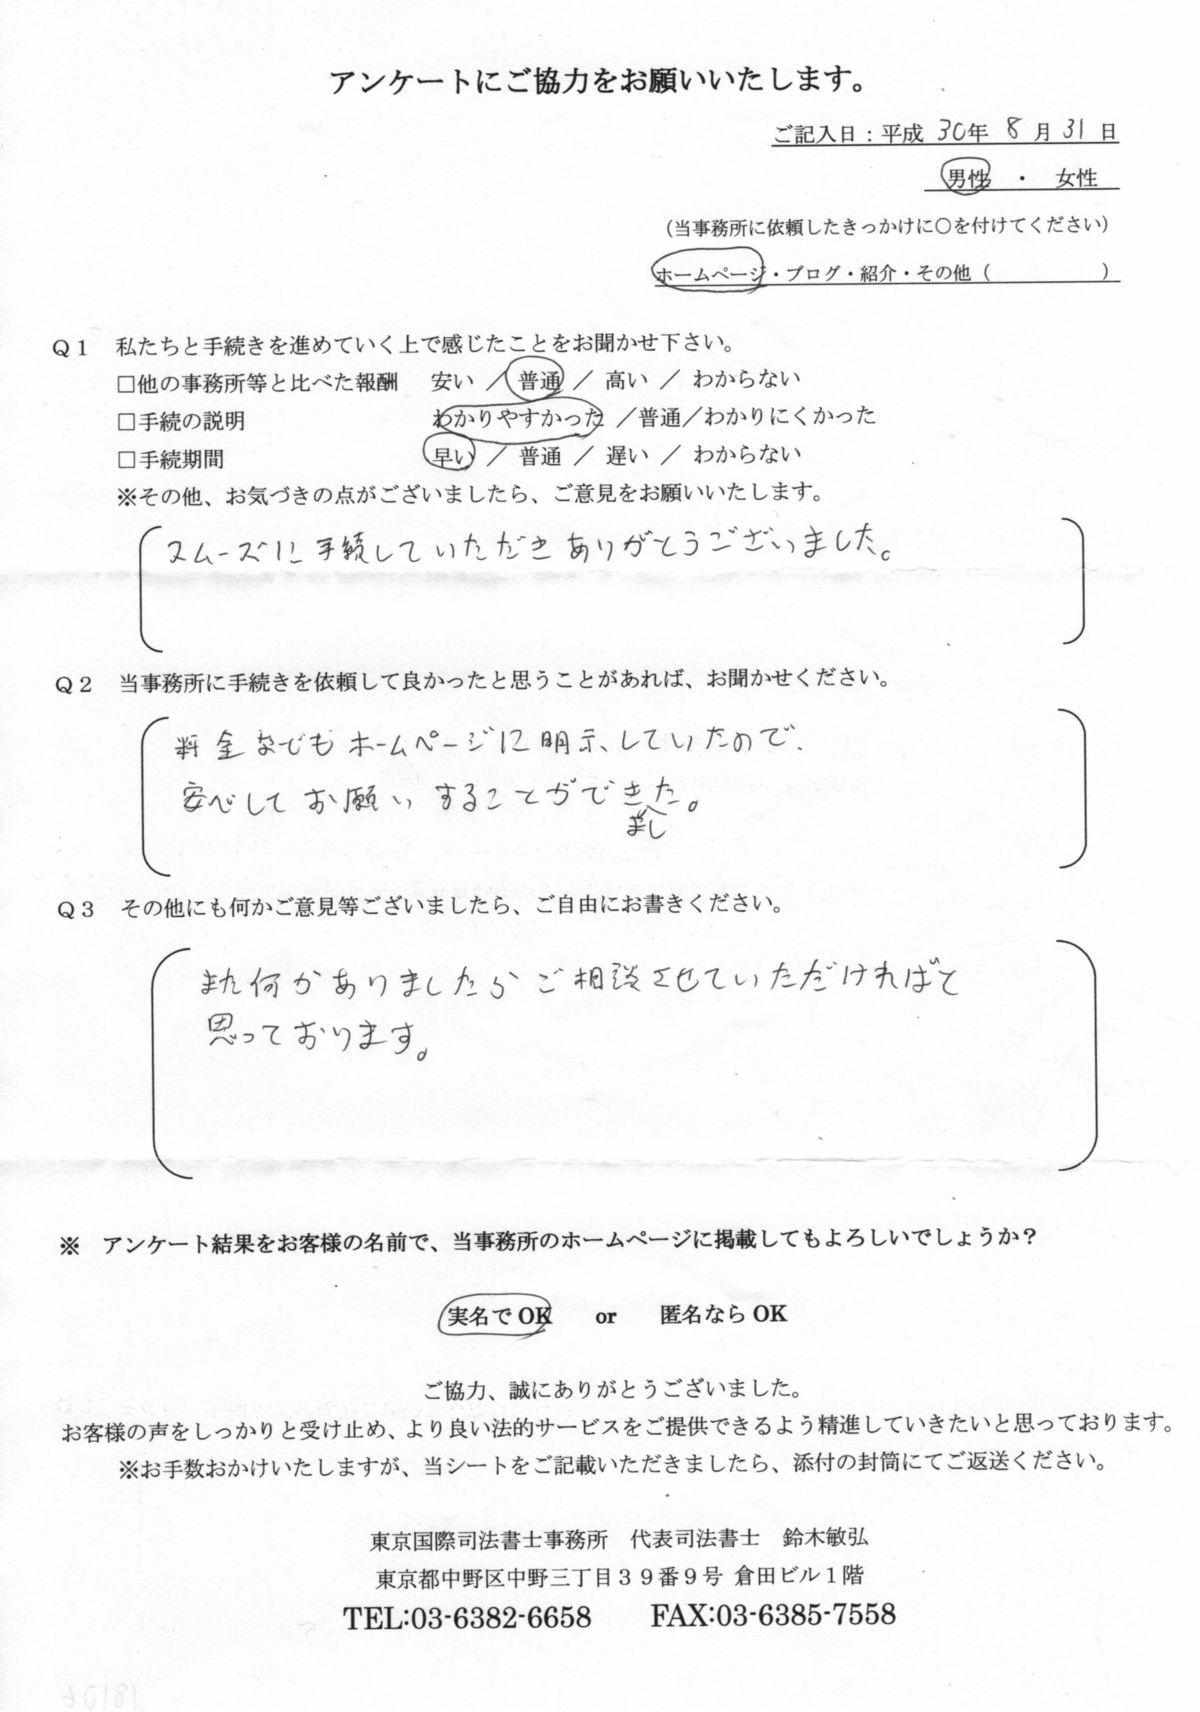 アンケートにご協力をお願いいたします。
ご記入日：平成 30年 8月 31日
男性 ・ 女性
（当事務所に依頼したきっかけに○を付けてください）
ホームページ・ブログ・紹介・その他（　　　　　）
Ｑ１　私たちと手続きを進めていく上で感じたことをお聞かせ下さい。
□他の事務所等と比べた報酬　安い ／ 普通 ／ 高い ／ わからない
□手続の説明　わかりやすかった ／普通／わかりにくかった
□手続期間　早い ／ 普通 ／ 遅い ／ わからない
※その他、お気づきの点がございましたら、ご意見をお願いいたします。
スムーズに手続していただきありがとうございました。
Ｑ２　当事務所に手続きを依頼して良かったと思うことがあれば、お聞かせください。
料金などもホームページに明示していたので、
安心してお願いすることができた。
まし
Ｑ３　その他にも何かご意見等ございましたら、ご自由にお書きください。
また何かありましたらご相談させていただければと
思っております。
※　アンケート結果をお客様の名前で、当事務所のホームページに掲載してもよろしいでしょうか？
実名で OK　or　匿名なら OK
ご協力、誠にありがとうございました。
お客様の声をしっかりと受け止め、より良い法的サービスをご提供できるよう精進していきたいと思っております。
※お手数おかけいたしますが、当シートをご記載いただきましたら、添付の封筒にてご返送ください。
東京国際司法書士事務所　代表司法書士　鈴木敏弘
東京都中野区中野三丁目３９番９号 倉田ビル１階
TEL:03-6382-6658　FAX:03-6385-7558